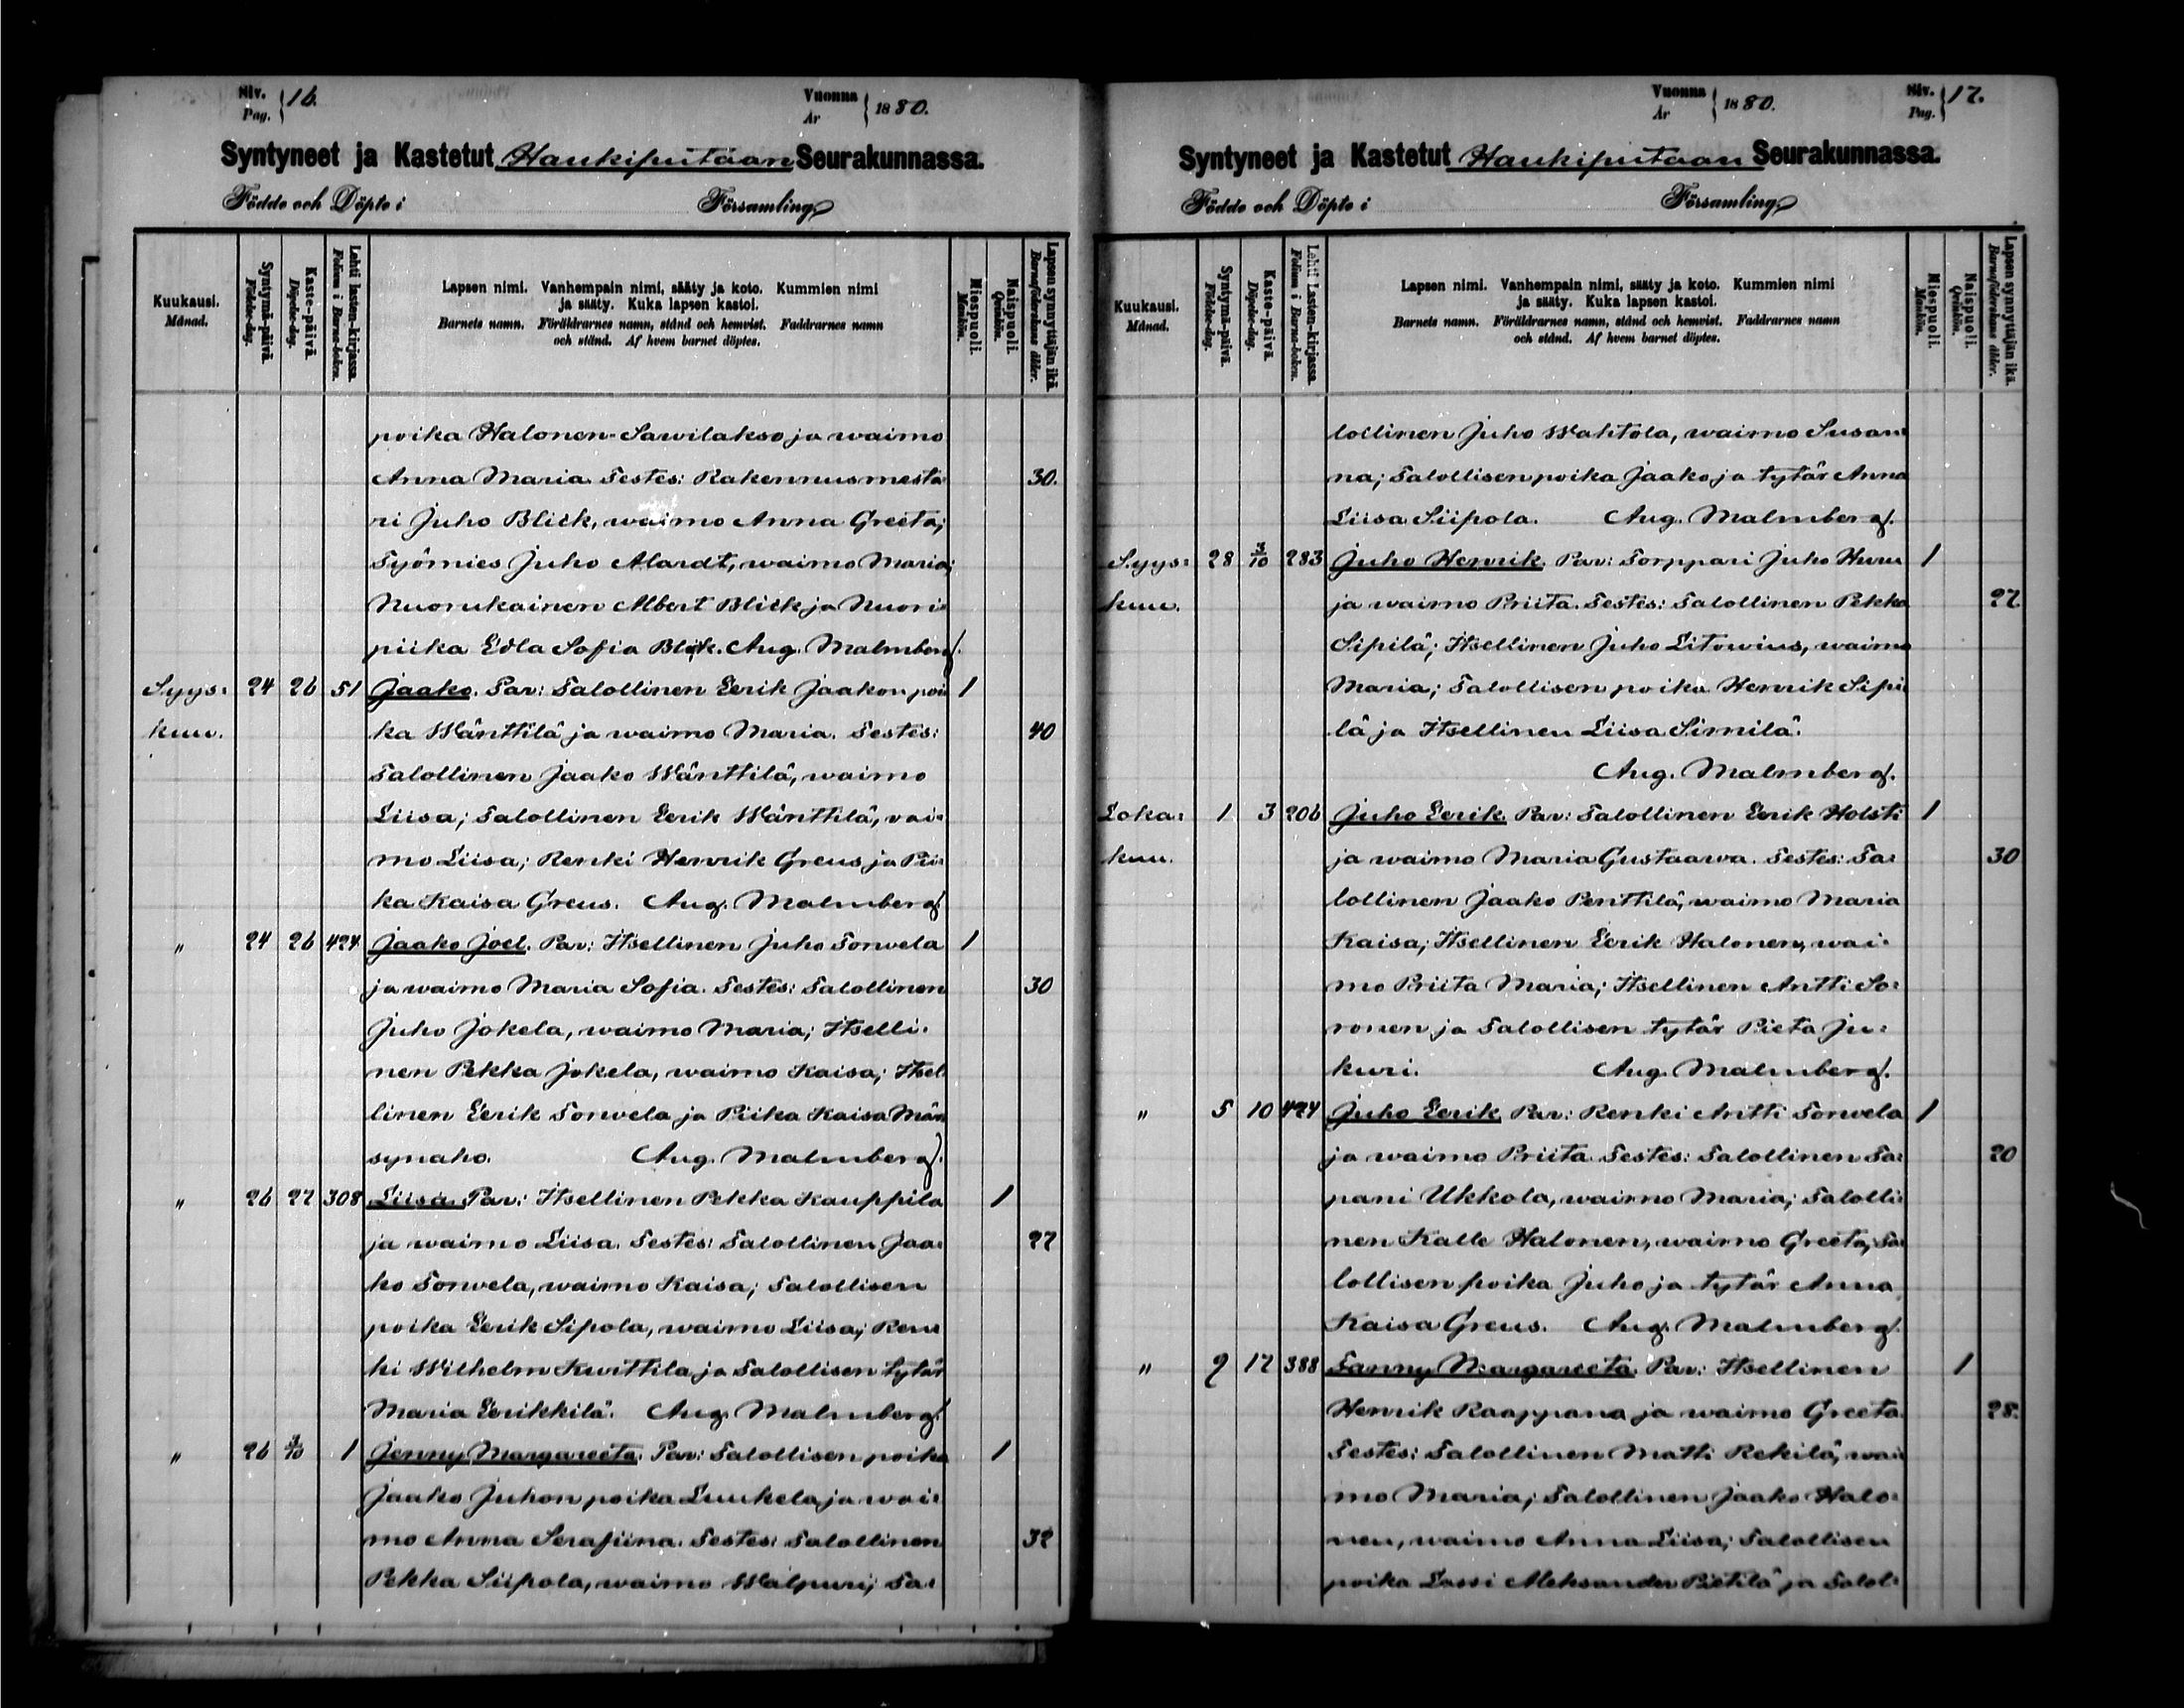 Siv. Pag. 16. Vuonna År 1880.
Syntyneet ja Kastetut Haukiputaan Seurakunnassa.
Födde och Döpte i Församling
Kuukausi. Månad.
Syntymä-päivä. Födelse-dag.
Kaste-päivä. Döpelse-dag.
Lehti lasten-kirjassa. Folium i Barna-boken.
Lapsen nimi. Vanhempain nimi, sääty ja koto. Kummien nimi
ja sääty. Kuka lapsen kastoi.
Barnets namn. Föräldrarnes namn, stånd och hemvist. Faddrarnes namn
och stånd. Af hvem barnet döptes.
Miespuoli. Mankön.
Naispuoli. Qvinkön.
Lapsen synnyttäjän ikä. Barnaföderskans ålder.
poika Halonen-Sawilakso ja waimo
Anna Maria. Testes: Rakennusmesta- 30.
ri Juho Blick, waimo Anna Greeta;
Työmies Juho Alardt, waimo Maria;
Nuorukainen Albert Blick ja Nuori-
piika Edla Sofia Blick. Aug. Malmberg.
Syys- 24 26 51 Jaako. Par: Talollinen Eerik Jaakon poi- 1
kuu. ka Wänttilä ja waimo Maria. Testes: 40
Talollinen Jaako Wänttilä, waimo
Liisa; Talollinen Eerik Wänttilä, vai-
mo Liisa; Renki Henrik Greus ja Pii-
ka Kaisa Greus. Aug. Malmberg.
" 24 26 424 Jaako Joel. Par: Itsellinen Juho Torwela 1
ja waimo Maria Sofia. Testes: Talollinen 30
Juho Jokela, waimo Maria; Itselli-
nen Pekka Jokela, waimo Kaisa; Itsel-
linen Eerik Torwela ja Piika Kaisa Män-
synaho. Aug. Malmberg.
" 26 27 308 Liisa. Par: Itsellinen Pekka Kauppila 1
ja waimo Liisa. Testes: Talollinen Jaa- 27
ko Torwela, waimo Kaisa; Talollisen
poika Eerik Sipola, waimo Liisa; Ren-
ki Wilhelm Kurttila ja Talollisen tytär
Maria Eerikkilä. Aug. Malmberg.
" 26 3/10 1 Jenny Margareeta. Par: Talollisen poika 1
Jaako Juhon poika Luukela ja wai-
mo Anna Serafiina. Testes: Talollinen 32
Pekka Siipola, waimo Walpuri; Ta-
Vuonna År 1880. Siv. Pag. 17.
Syntyneet ja Kastetut Haukiputaan Seurakunnassa.
Födde och Döpte i Församling
Kuukausi. Månad.
Syntymä-päivä. Födelse-dag.
Kaste-päivä. Döpelse-dag.
Lehti Lasten-kirjassa. Folium i Barna-boken.
Lapsen nimi. Vanhempain nimi, sääty ja koto. Kummien nimi
ja sääty. Kuka lapsen kastoi.
Barnets namn. Föräldrarnes namn, stånd och hemvist. Faddrarnes namn
och stånd. Af hvem barnet döptes.
Miespuoli. Mankön.
Naispuoli. Qvinkön.
Lapsen synnyttäjän ikä. Barnaföderskans ålder.
lollinen Juho Wahtola, waimo Susan-
na; Talollisen poika Jaako ja tytär Anna
Liisa Siipola. Aug. Malmberg.
Syys- 28 3/10 283 Juho Henrik. Par: Torppari Juho Huru 1
kuu. ja waimo Priita. Testes: Talollinen Pekka 27.
Sipilä; Itsellinen Juho Litowius, waimo
Maria; Talollisen poika Henrik Sipi-
lä ja Itsellinen Liisa Similä.
Aug. Malmberg.
Loka- 1 3 206 Juho Eerik. Par: Talollinen Eerik Holsti 1
kuu. ja waimo Maria Gustaawa. Testes: Ta- 30
lollinen Jaako Penttilä, waimo Maria
Kaisa; Itsellinen Eerik Halonen, wai-
mo Priita Maria; Itsellinen Antti So-
ronen ja Talollisen tytär Pieta Ju-
kuri. Aug. Malmberg.
" 5 10 424 Juho Eerik. Par: Renki Antti Torwela 1
ja waimo Priita. Testes: Talollinen Ta- 20
pani Ukkola, waimo Maria; Talolli-
nen Kalle Halonen, waimo Greeta; Ta-
lollisen poika Juho ja tytär Anna
Kaisa Greus. Aug. Malmberg.
" 9 17 388 Fanny Margareeta. Par: Itsellinen 1
Henrik Raappana ja waimo Greeta. 28.
Testes: Talollinen Matti Rekilä, wai-
mo Maria; Talollinen Jaako Halo-
nen, waimo Anna Liisa; Talollisen
poika Lassi Aleksander Pietilä ja Talol-